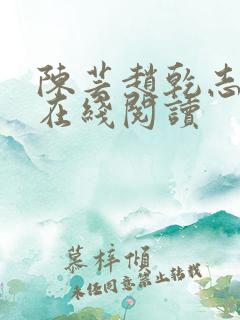 陳芸趙乾志
在綫閱讀
慕梓傾
未经同意禁止转载